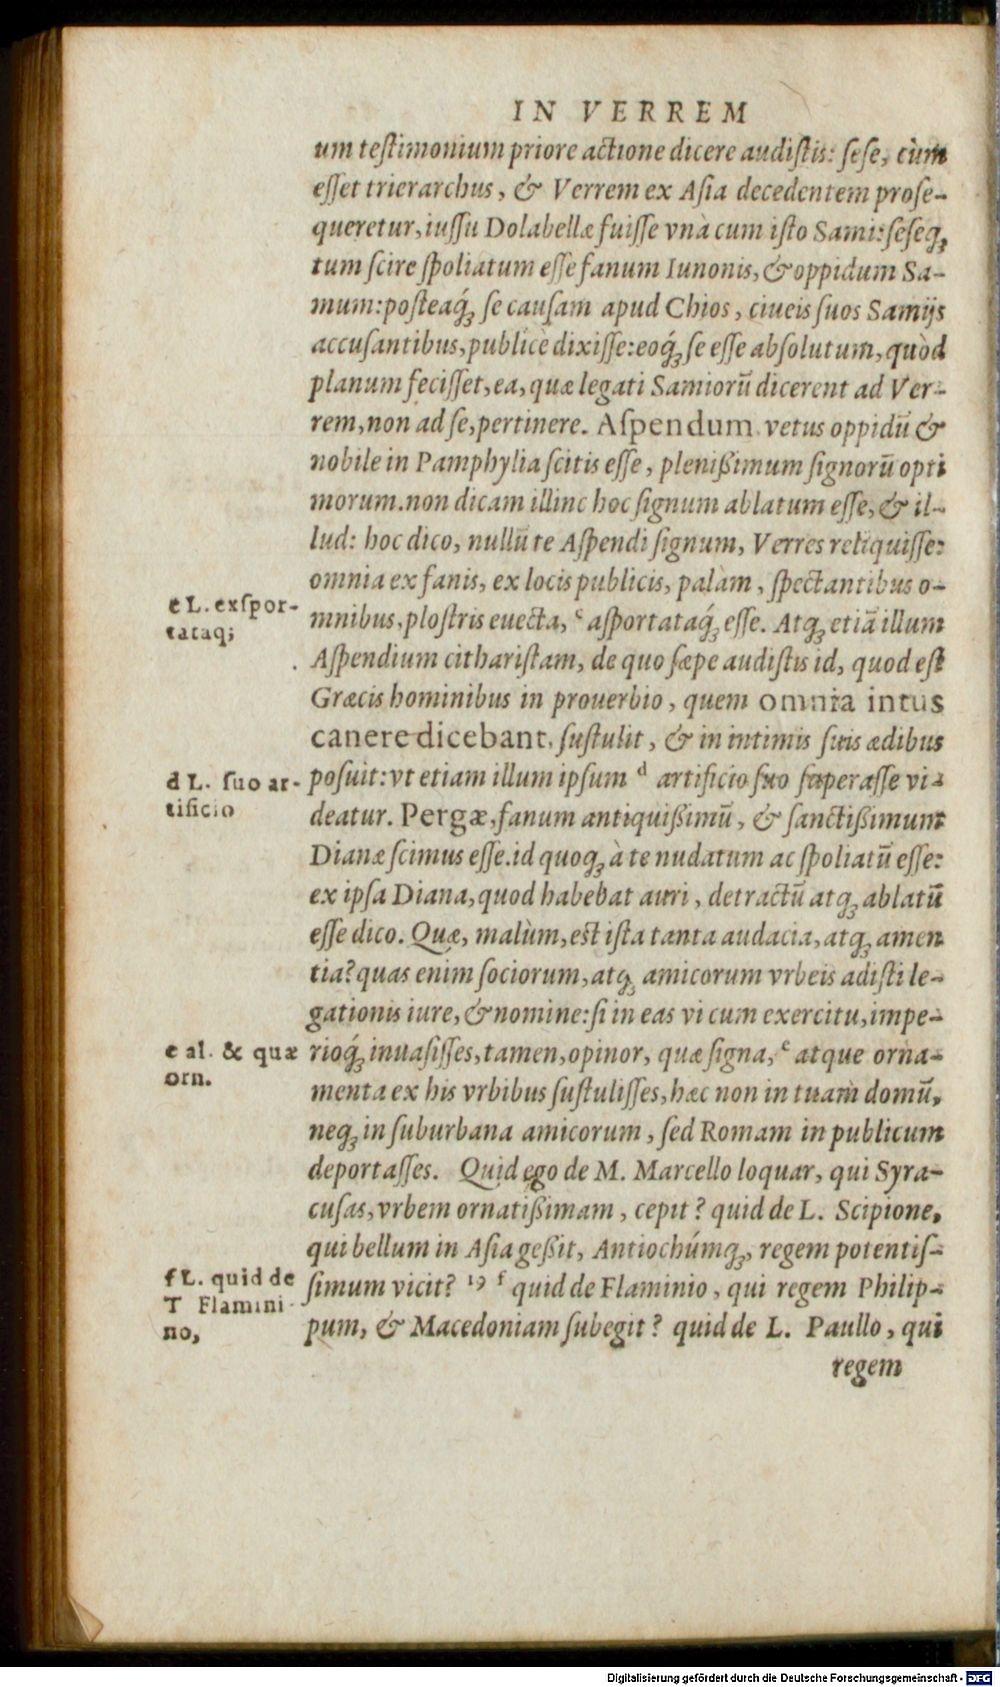 IN VERREM
um testimonium priore actione dicere audistis: sese, cùm
esset trierarchus, & Verrem ex Asia decedentem prose-
queretur, iussu Dolabellæ fuisse vnà cum isto Sami: seseq́ꝫ
tum scire spoliatum esse fanum Iunonis, & oppidum Sa-
mum: posteaq́ꝫ se causam apud Chios, ciueis suos Samijs
accusantibus, publicè dixisse: eoq́ꝫ se esse absolutum, quòd
planum fecisset, ea, quæ legati Samiorū dicerent ad Ver-
rem, non ad se, pertinere. Aspendum vetus oppidū &
nobile in Pamphylia scitis esse, plenißimum signorū opti
morum. non dicam illinc hoc signum ablatum esse, & il-
lud: hoc dico, nullū te Aspendi signum, Verres reliquisse:
omnia ex fanis, ex locis publicis, palàm, spectantibus o-
mnibus, plostris euecta, c asportataq́ꝫ esse. Atqꝫ etiā illum
Aspendium citharistam, de quo sæpe audistis id, quod est
Græcis hominibus in prouerbio, quem omnia intus
canere dicebant, sustulit, & in intimis suis ædibus
posuit: vt etiam illum ipsum d artificio suo superasse vi-
deatur. Pergæ, fanum antiquißimū, & sanctißimum
Dianæ scimus esse. id quoqꝫ à te nudatum ac spoliatū esse:
ex ipsa Diana, quod habebat auri, detractū atqꝫ ablatū
esse dico. Quæ, malùm, est ista tanta audacia, atqꝫ amen
tia? quas enim sociorum, atqꝫ amicorum vrbeis adisti le-
gationis iure, & nomine: si in eas vi cum exercitu, impe-
rioq́ꝫ inuasisses, tamen, opinor, quæ signa, e atque orna-
menta ex his vrbibus sustulisses, hæc non in tuam domū,
neqꝫ in suburbana amicorum, sed Romam in publicum
deportasses. Quid ego de M. Marcello loquar, qui Syra-
cusas, vrbem ornatißimam, cepit? quid de L. Scipione,
qui bellum in Asia geßit, Antiochúmqꝫ, regem potentis-
simum vicit? 19 f quid de Flaminio, qui regem Philip-
pum, & Macedoniam subegit? quid de L. Paullo, qui
regem
c L. expor-
tataq;
d L. suo ar-
tificio
e al. & quæ
orn.
f L. quid de
T Flamini
no,
Digitalisierung gefördert durch die Deutsche Forschungsgemeinschaft - DFG